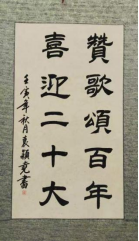 贊歌頌百年
喜迎二十大
壬寅年秋月袁穎堯書